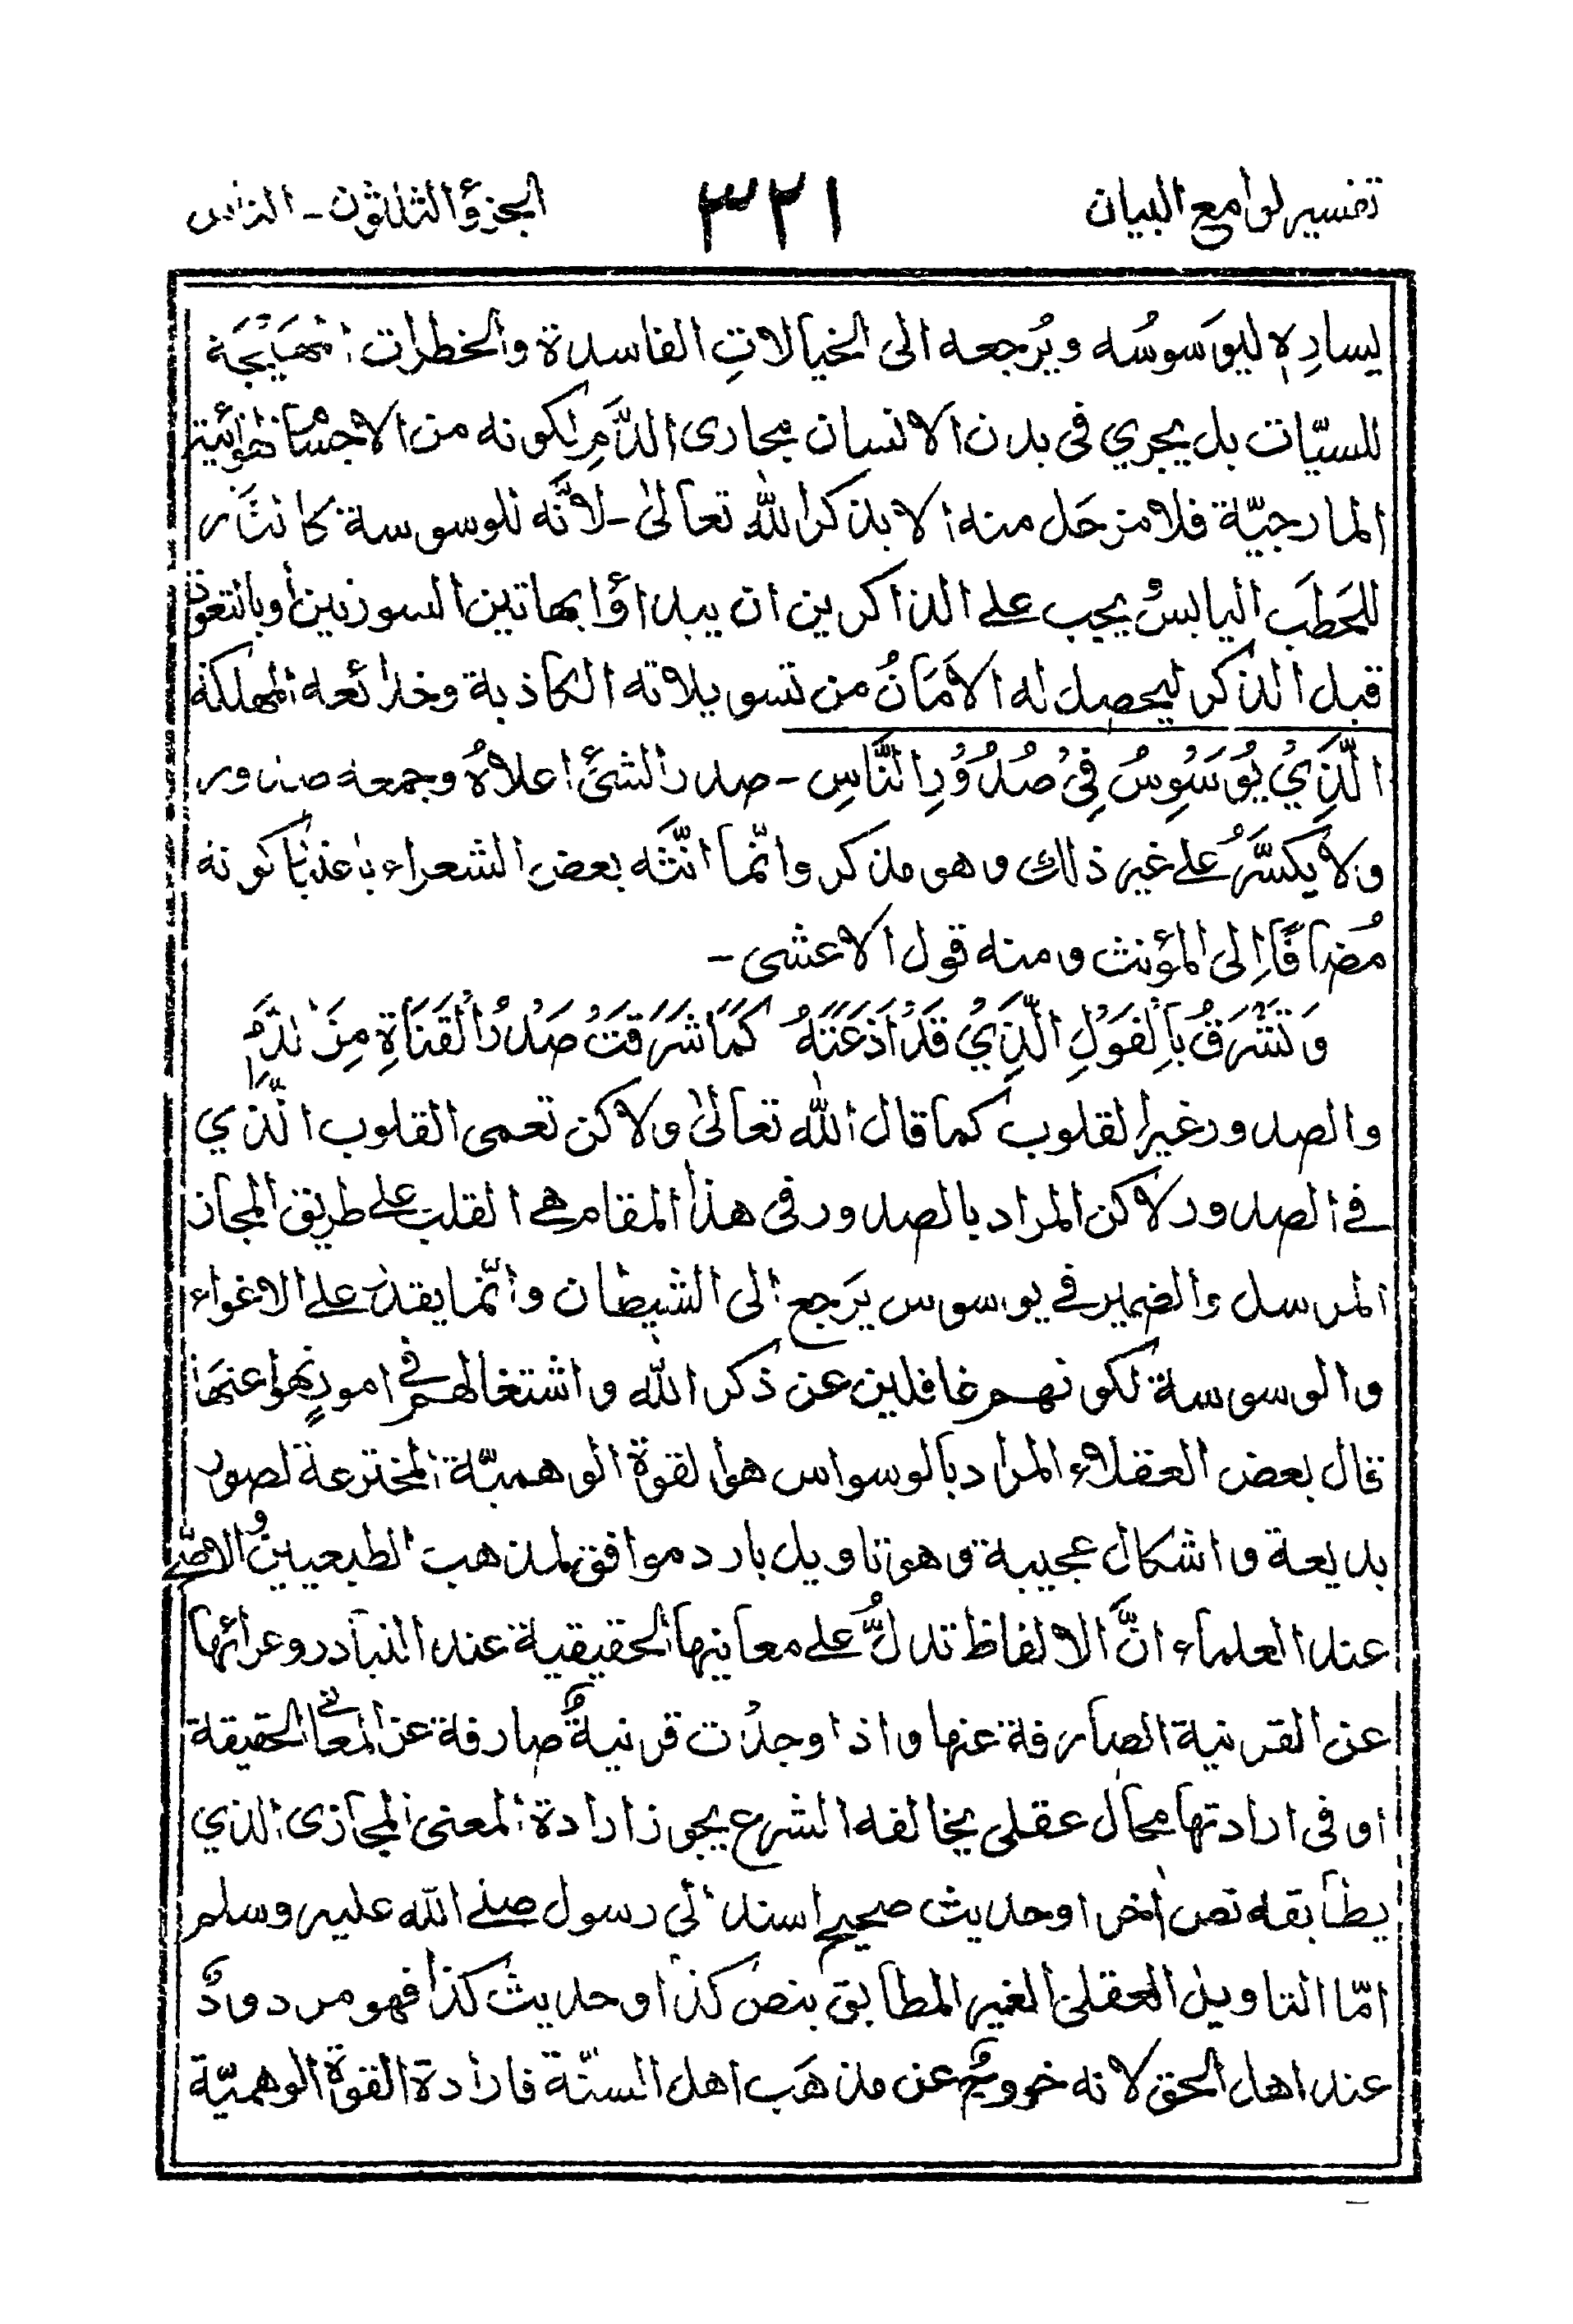 تفسير لوامع البيان ٣٢١ الجزؤ الثلثون - الناس
ليسادِهٖ ليوَسوسُه ويُرجعه الى الخيالاتِ الفاسدة والخطرات المهَيْجَة
للسيّات بل يجري فى بدن الانسان مجارى الدَّمِ لكونه من الاجسْام الهوائية
المارجيّة فلا مزحَل منه الا بذكر الله تعالىٰ - لانَّه للوسوسة كالنَّار
للحَطَب اليابسْ يجب على الذاكرين ان يبداؤا بهاتين السورتين أو بالتعوذ
قبل الذكر ليحصل له الأمَانُ من تسويلاته الكاذبة وخدائعه المهلكة
الَّذِيْ يُوَسْوِسُ فِيْ صُدُوْرِ النَّاسِ - صدر الشئ اعلاهُ وجمعه صدور
ولا يكسَّرُ على غير ذلك وهو مذكر وانّما انَّثَه بعض الشعراء باعتبار كونه
مُضافًا اِلى المؤنث ومنه قول الاعشى -
وَتَشْرَقُ بِالْقَوْلِ الَّذِيْ قَدْ اَذَعْتَهُ كَمَا شَرَقَتْ صَدْرُ الْقَنَاةِ مِنَ الدَّمِ
والصدور غير القلوب كما قال الله تعالىٰ ولاكن تعمى القلوب الَّذي
فى الصدور لاكن المراد بالصدور فى هذا المقام هى القلب على طريق المجاز
المرسل والضمير فى يوسوس يَرجع الى الشيطان وانّما يقدر على الاغواء
والوسوسة لكونهم غافلين عن ذكر الله واشتغالهم فى امورٍ نهوا عنها
قال بعض العقلاء المراد بالوسواس هو القوة الوهميّة المخترعة لصور
بديعة واشكال عجيبة وهو تاويل بارد موافق لمذهب الطبعيين والاصح
عند العلماء انَّ الالفاظ تدلُّ على معانيها الحقيقية عند التبادر وعرائها
عن القرنية الصارفة عنها واذا وجدْت قرنيةٌ صارفة عن المعانى الحقيقة
او فى ارادتها محال عقلى يخالفه الشرع يجوز ارادة المعنى المجازى الذي
يطابقه نص اٰخر او حديث صحيح اسند الى رسول صلى الله عليه وسلم
امّا التاويل العقلى الغير المطابق بنص كذا او حديث كذا فهو مردودٌ
عند اهل الحق لانه خروجٌ عن مذهَب اهل السنّة فارادة القوة الوهميّة